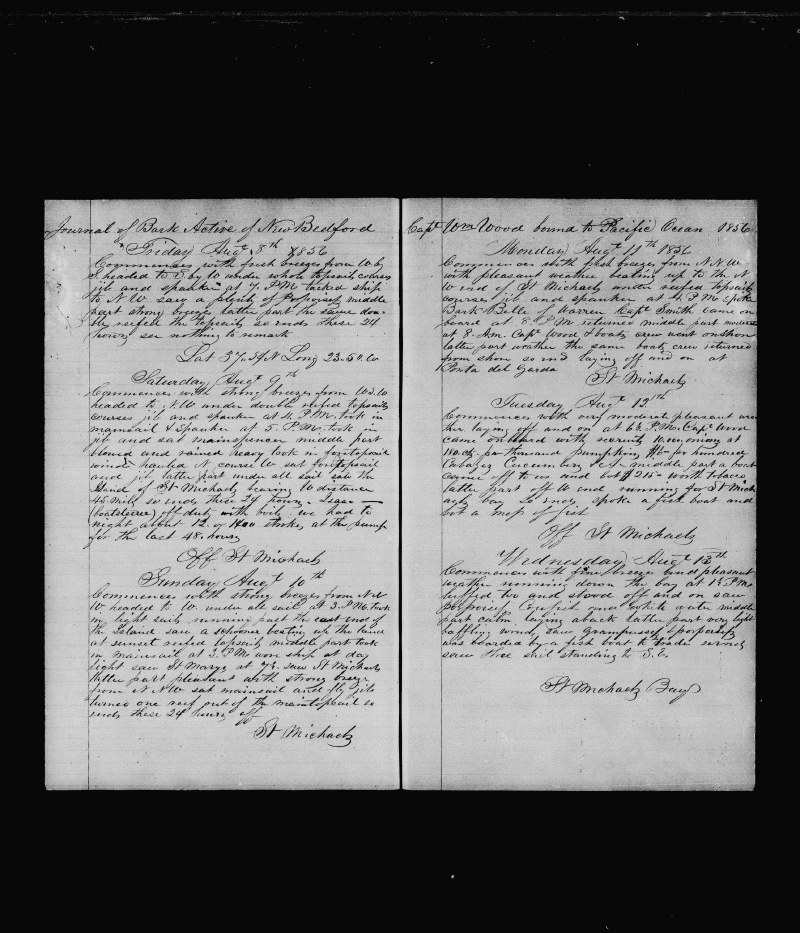 Journal of Bark Active of New Bedford
Friday Augt 8th 1856
Commences with fresh breezes from W by
S headed to S by W under whole topsails courses
jib and spanker at 7. P.M. tacked ship
to N W saw a plenty of Porpoises middle
part strong breeze latter part the same dou-
ble reefed the topsails so ends these 24
hours see nothing to remark
Lat 37.54 N Long 23.50 W
Saturday Augt 9th
Commences with strong breezes from W S W
headed to N W under double reefed topsails
courses jib and spanker at 4. P.M. took in
mainsail & Spanker at 5. P.M. took in
jib and sat mainspencer middle part
blowed and rained heavy took in foretopsail
wind hauled N course W sat foretopsail
and jib latter part under all sail saw the
Island of St Michaels bearing W distance
45 mils so ends these 24 hours Isaac
(boatsteerer) off duty with boils we had to
night about 12 or 1400 strokes at the pump
for the last 48. hours
Off St Michaels
Sunday Augt 10th
Commences with strong breezes from N W
W headed to W. under all sail at 3. P.M. took
in light sails running past the east end of
the Island saw a schooner beating up the land
at sunset reefed topsails middle part took
in mainsail at 3. P.M. wore ship at day
light saw St Marys at 7½ saw St Michaels
latter part pleasant with strong breeze
from N N W sat mainsail and fly jib
turned one reef out of the maintopsail so
ends these 24 hours off
St Michaels
Capt Wm Wood bound to Pacific Ocean 1856
Monday Augt 11th 1856
Commences with fresh breezes from N. N. W.
with pleasant weather beating up to the N
W end of St Michaels under reefed topsails
courses jib and spanker at 4. P.M. spoke
Bark Belle of Warren Capt Smith came on
board at 8. P.M. returned middle part moderate
at 8. A.M. Capt Wood & boats crew went on shore
latter part weather the same boats crew returned
from shore so ends laying off and on at
Ponta del Garda
St Michaels
Tuesday Augt 12th
Commences with very moderate pleasant wea
ther laying off and on at 6½ P.M. Capt Wood
came on board with 10.000 onions at
110. cts. per thousand pumpkins per hundred
Cabages Cucumbers &c. middle part a boat
came off to us and bot $215- worth tobacco
latter part off W end running for St Mich
aels bay so ends spoke a fish boat and
bot a mess of fish
Off St Michaels
Wednesday Augt 13th
Commences with fine breezes and pleasant
weather running down the bay at 1½ P.M.
luffed too and stood off and on saw
porpoises Cowfish and white water middle
part calm laying aback latter part very light
baffling winds saw Grampuses & porpoises
was boarded by a fish boat to trade
saw three sail standing to S. E.
St Michaels Bay